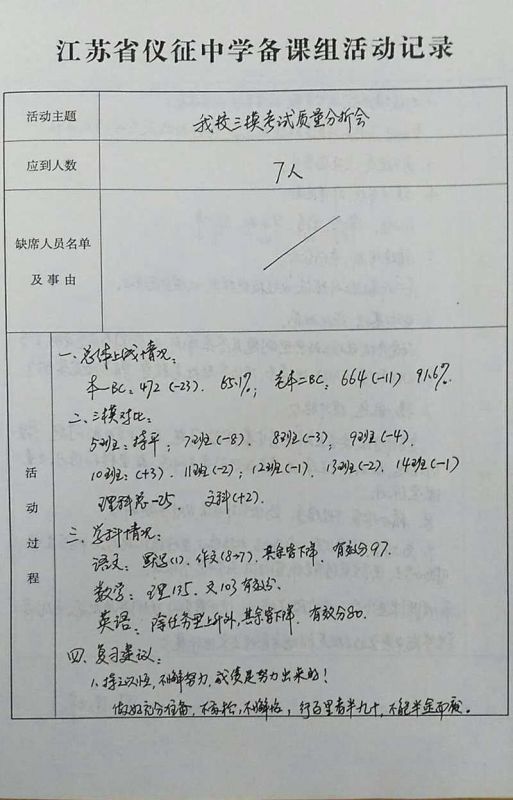 江苏省仪征中学备课组活动记录
活动主题 我校三模考试质量分析会
应到人数 7人
缺席人员名单
及事由
活动过程
一、总体上线情况:
本一BC: 472 (-23). 65.1%; 本二BC: 664 (-11) 91.6%
二、三模对比:
5班: 持平; 7班 (-8). 8班 (-3), 9班 (-4).
10班: (+3). 11班 (-2); 12班 (-1). 13班 (-2). 14班 (-1)
理科总 -25. 文科 (+2).
三、学科情况:
语文: 默写(1). 作文(8→7). 其余皆下降. 有效分97.
数学: 理135. 文103有效分.
英语: 除任务型上升外, 其余皆下降. 有效分80.
四、复习建议:
1. 持之以恒, 不懈努力, 成绩是努力出来的!
做好充分准备, 不放松, 不懈怠, 行百里者半九十, 不